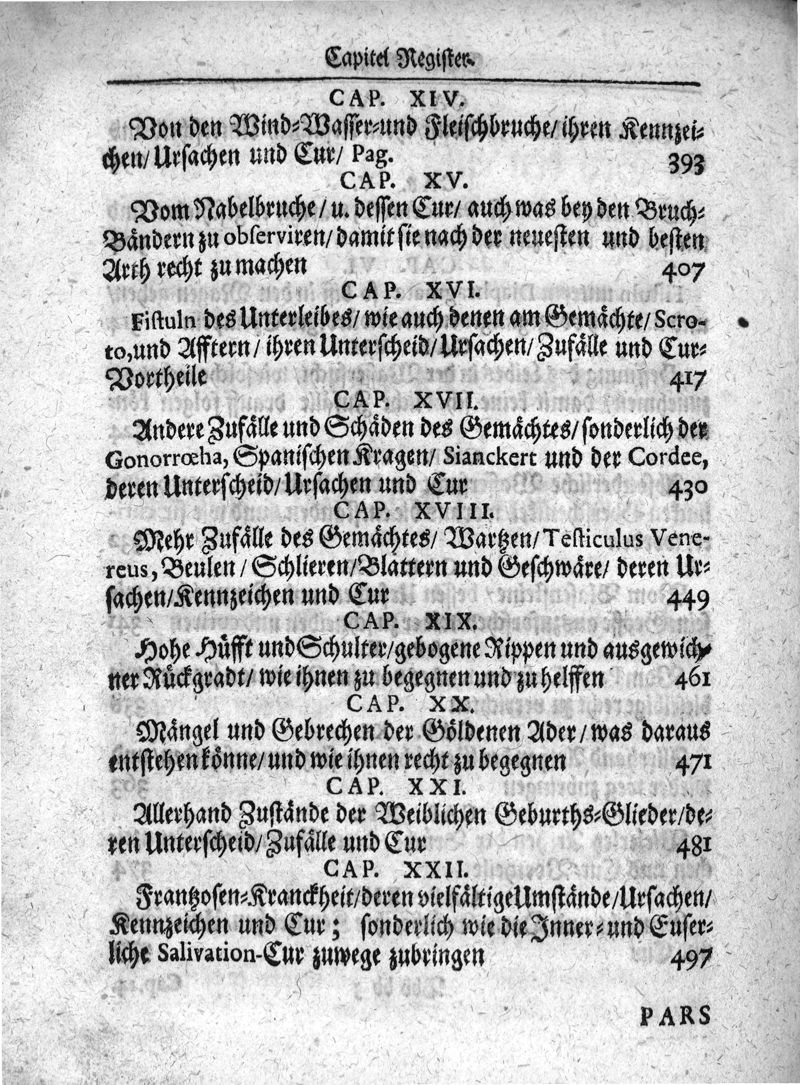 Capitel Register.
CAP. XIV.
Von den Wind-Wasser-und Fleischbruche/ihren Kennzei-
chen/Ursachen und Cur/ Pag. 393
CAP. XV.
Vom Nabelbruche/u. dessen Cur/ auch was bey den Bruch-
Bändern zu observiren/damit sie nach der neuesten und besten
Arth recht zu machen 407
CAP. XVI.
Fistuln des Unterleibes/ wie auch denen am Gemächte/ Scro-
to, und Afftern/ ihren Unterscheid/Ursachen/Zufälle und Cur-
Vortheile 417
CAP. XVII.
Andere Zufälle und Schäden des Gemächtes/sonderlich der
Gonorrœha, Spanischen Kragen/ Sianckert und der Cordee,
deren Unterscheid/Ursachen und Cur 430
CAP. XVIII.
Mehr Zufälle des Gemächtes/ Wartzen/Testiculus Vene-
reus, Beulen/Schlieren/Blattern und Geschwäre/ deren Ur-
sachen/Kennzeichen und Cur 449
CAP. XIX.
Hohe Hüfft und Schulter/gebogene Rippen und ausgewich-
ner Rückgradt/ wie ihnen zu begegnen und zu helffen 461
CAP. XX.
Mängel und Gebrechen der Göldenen Ader/was daraus
entstehen könne/ und wie ihnen recht zu begegnen 471
CAP. XXI.
Allerhand Zustände der Weiblichen Geburths-Glieder/de-
ren Unterscheid/Zufälle und Cur 481
CAP. XXII.
Frantzosen-Kranckheit/deren vielfältige Umstände/Ursachen/
Kennzeichen und Cur; sonderlich wie die Inner- und Euser-
liche Salivation-Cur zuwege zubringen 497
PARS